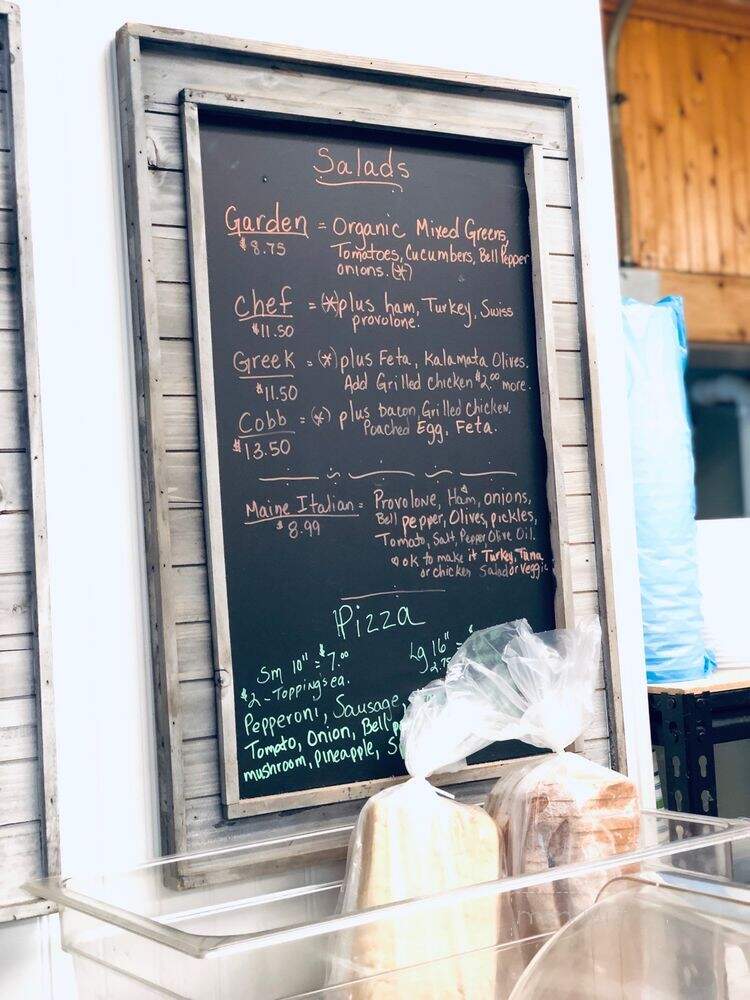 Salads
Garden = Organic Mixed Greens,
$8.75 Tomatoes, Cucumbers, Bell Pepper
onions. (*)
Chef = (*) plus ham, Turkey, Swiss
$11.50 provolone.
Greek = (*) plus Feta, Kalamata Olives.
$11.50 Add Grilled chicken $2.00 more.
Cobb = (*) plus bacon, Grilled chicken.
$13.50 Poached Egg, Feta.
Maine Italian = Provolone, Ham, onions,
$8.99 Bell pepper, Olives, pickles,
Tomato, Salt, Pepper, Olive Oil.
ok to make it Turkey, Tuna
or chicken Salad or Veggie
Pizza
Sm 10" = $7.00 Lg 16" =
$2 - Topping's ea. 2.75
Pepperoni, Sausage,
Tomato, Onion, Bell
mushroom, pineapple,